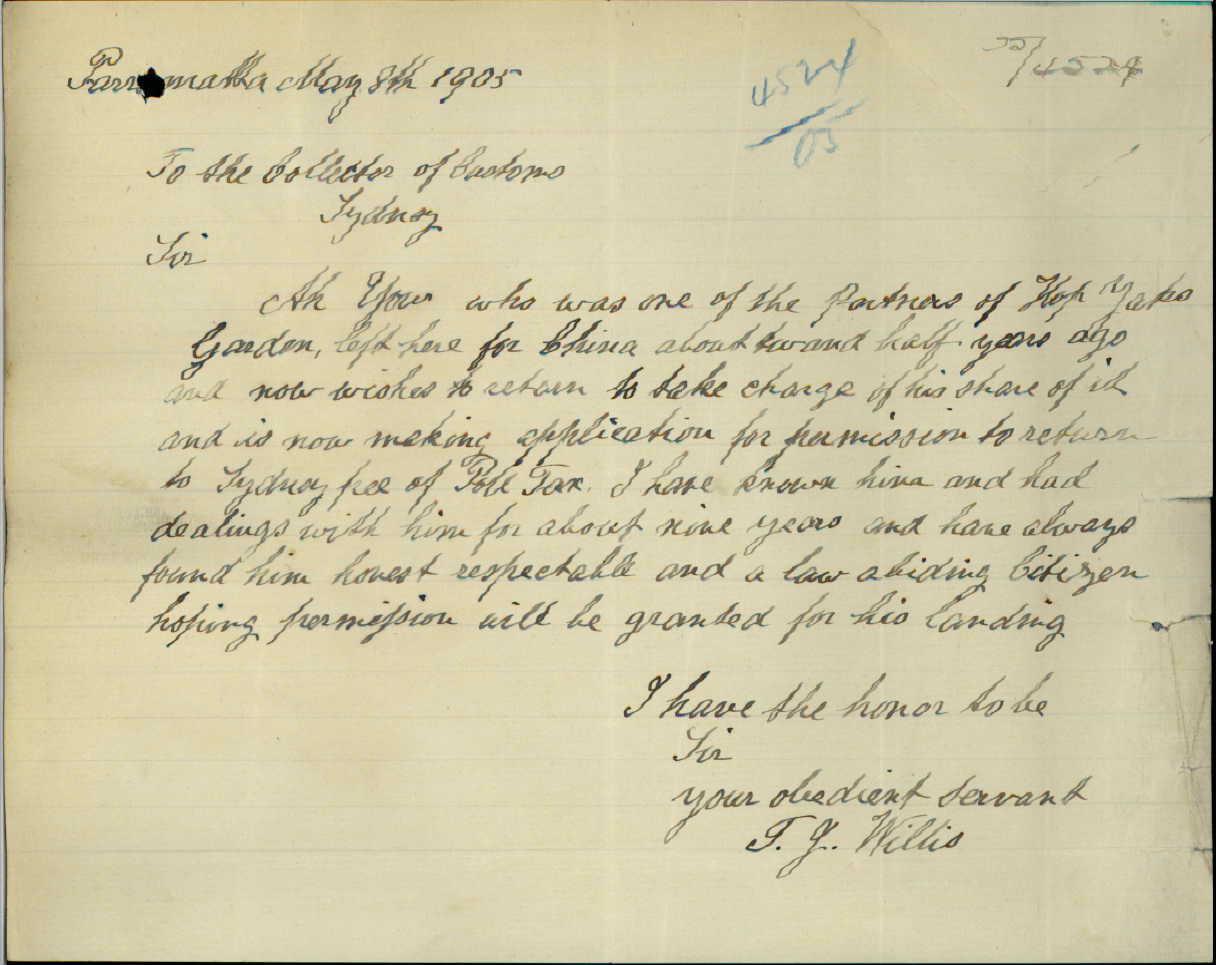 Parramatta May 8th 1905
4524
05
4524
To the Collector of Customs
Sydney
Sir
Ah Yow who was one of the Partners of Hop
Garden, left here for China about two and half years ago
and now wishes to return to take charge of his share of it
and is now making application for permission to return
to Sydney free of Poll Tax. I have known him and had
dealings with him for about nine years and have always
found him honest respectable and a law abiding Citizen
hoping permission will be granted for his landing
I have the honor to be
Sir
your obedient servant
T. J. Willis